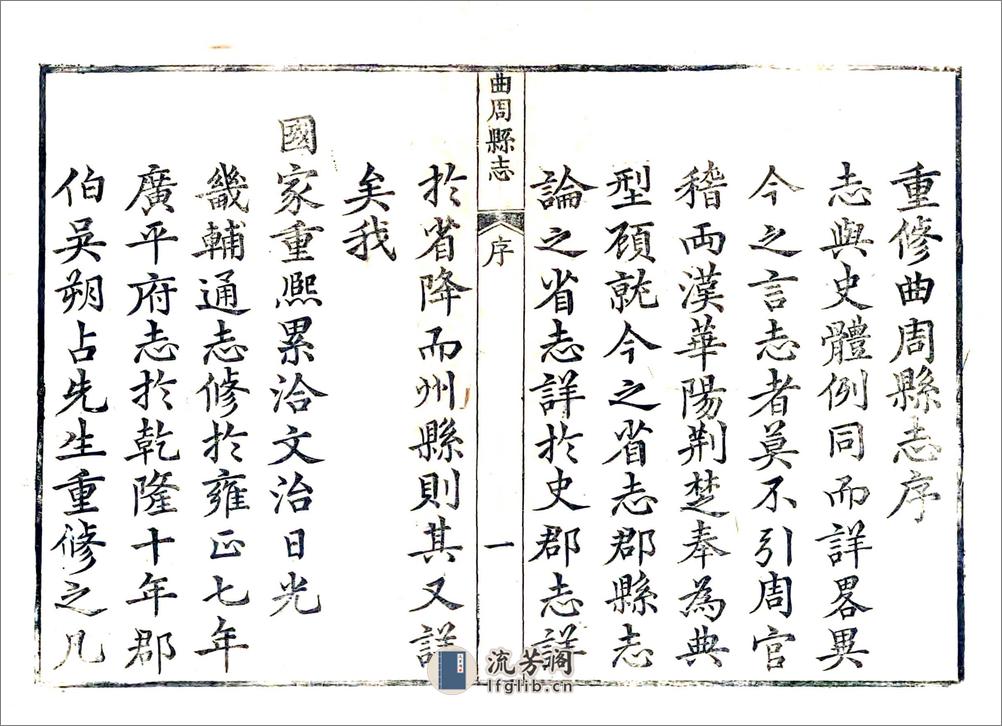 重修曲周縣志序
志與史體例同而詳畧異
今之言志者莫不引周官
稽兩漢華陽荆楚奉為典
型頋就今之省志郡縣志
論之省志詳於史郡志詳
曲周縣志
序
一
於省降而州縣則其又詳
矣我
國家重熙累洽文治日光
畿輔通志修於雍正七年
廣平府志於乾隆十年郡
伯吴朔占先生重修之凡
流芳閣
lfglib.cn